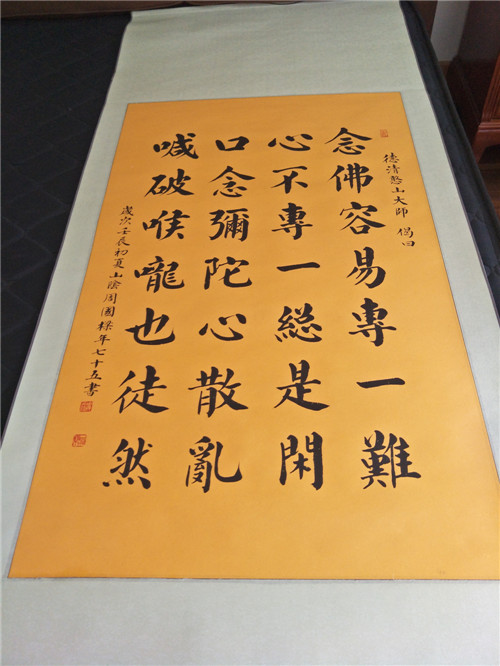 德清憨山大师 偈曰
念佛容易專一難
心不專一総是閑
口念彌陀心散亂
喊破喉嚨也徒然
歲次壬辰初夏山陰周國樑年七十五書